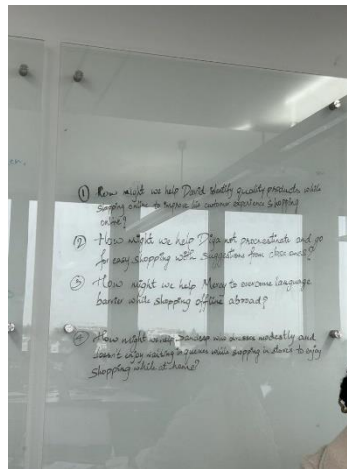 ① How might we help David identify quality products while
shopping online to improve his customer experience shopping
online?
② How might we help Diya not procrastinate and go
for easy shopping with suggestions from close ones?
③ How might we help Mercy to overcome language
barrier while shopping offline abroad?
④ How might we help Sandeep who dresses modestly and
doesn't enjoy waiting in queues while shopping in stores to enjoy
shopping while at home?